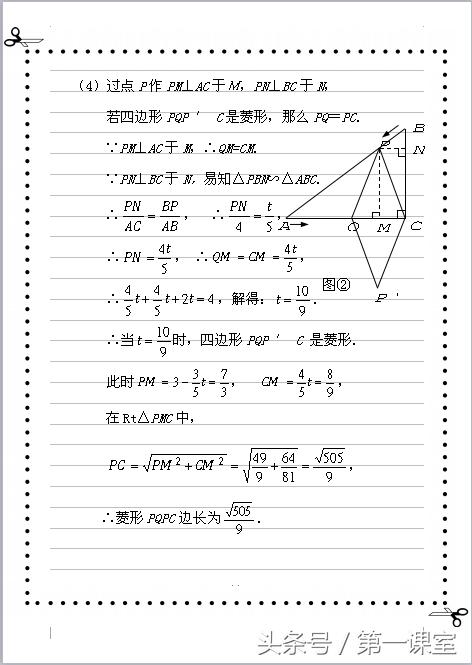 （4）过点 P作 PM⊥AC于 M，PN⊥BC 于 N，
若四边形 PQP ′ C 是菱形，那么 PQ＝PC.
∵PM⊥AC于 M，∴QM=CM.
∵PN⊥BC于 N，易知△PBN∽△ABC.
∴PN/AC＝BP/AB， ∴PN/4＝t/5，
∴PN＝4t/5， ∴QM＝CM＝4t/5，
∴4/5t+4/5t+2t＝4，解得：t＝10/9.
∴当t＝10/9时，四边形 PQP ′ C 是菱形.
此时PM＝3－3/5t＝7/3， CM＝4/5t＝8/9，
在Rt△PMC中，
PC＝√(PM²+CM²)＝√(49/9+64/81)＝√505/9，
∴菱形PQPC边长为√505/9.
B
P
N
A
Q
M
C
图②
P ′
头条号 / 第一课堂